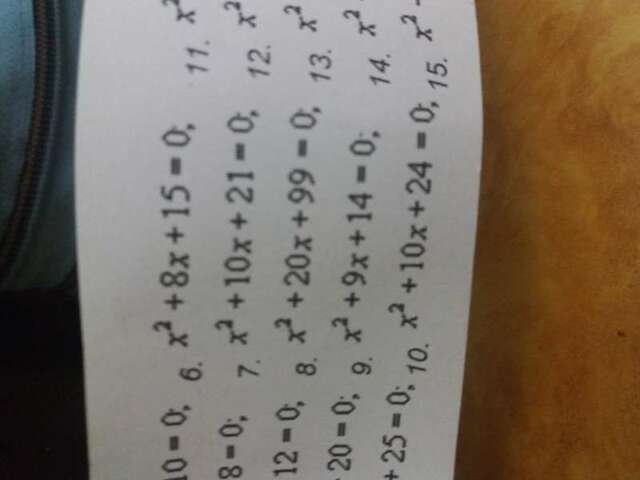 10 = 0; 6. x² + 8x + 15 = 0; 11. x²
8 = 0; 7. x² + 10x + 21 = 0; 12. x²
12 = 0; 8. x² + 20x + 99 = 0; 13. x²
20 = 0; 9. x² + 9x + 14 = 0; 14. x²
+ 25 = 0; 10. x² + 10x + 24 = 0; 15. x² -